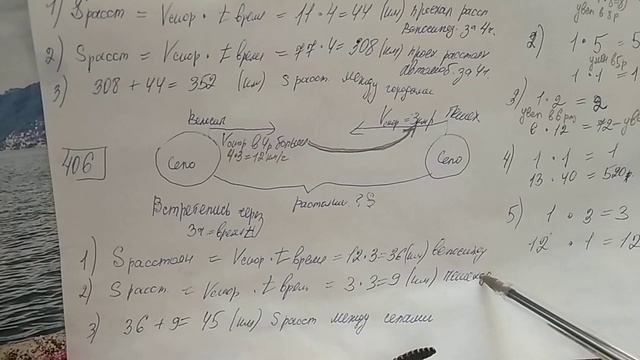 1) Sрасст = Vскор · t время = 11 · 4 = 44 (км) проехал расст
велосипед. за 4ч.
2) Sрасст = Vскор · t время = 77 · 4 = 308 (км) проех расстоян
автомоб. за 4ч.
3) 308 + 44 = 352 (км) S расст. между городами
Велосип
Vскор = 3км/ч
Пешех
Vскор в 4р больше
4·3=12км/ч
406
Село
Село
Встретились через
3ч = время(t)
расстоян. ? S
1) Sрасстоян = Vскор · t время = 12 · 3 = 36 (км) велосипед
2) S расст. = Vскор · t врем = 3 · 3 = 9 (км) пешеход
3) 36 + 9 = 45 (км) S расст между селами
увел в 8р
2) 1 · 5 = 5
ув в 5р
1 · 1 = 1
3) 1 · 2 = 2
увел в 6раз
6 · 12 = 72
4) 1 · 1 = 1
13 · 40 = 520
5) 1 · 3 = 3
12 · 1 = 12